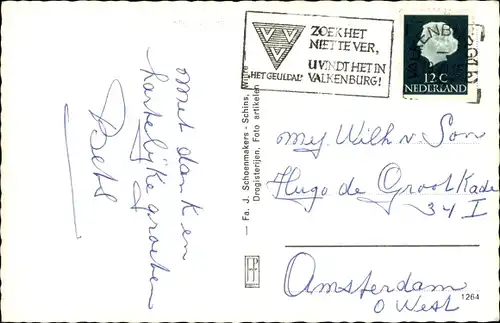 met dank en
hartelijke groeten
ZOEK HET
NIET TE VER,
U VINDT HET IN
VALKENBURG!
"HET GEULDAL"
VALKENBURG
12 C
NEDERLAND
Fa. J. Schoenmakers - Schins, Wijlre
Drogisterijen. Foto artikelen
my Wilh v Son
Hugo de Groot Kade
34 I
Amsterdam
O West
1264